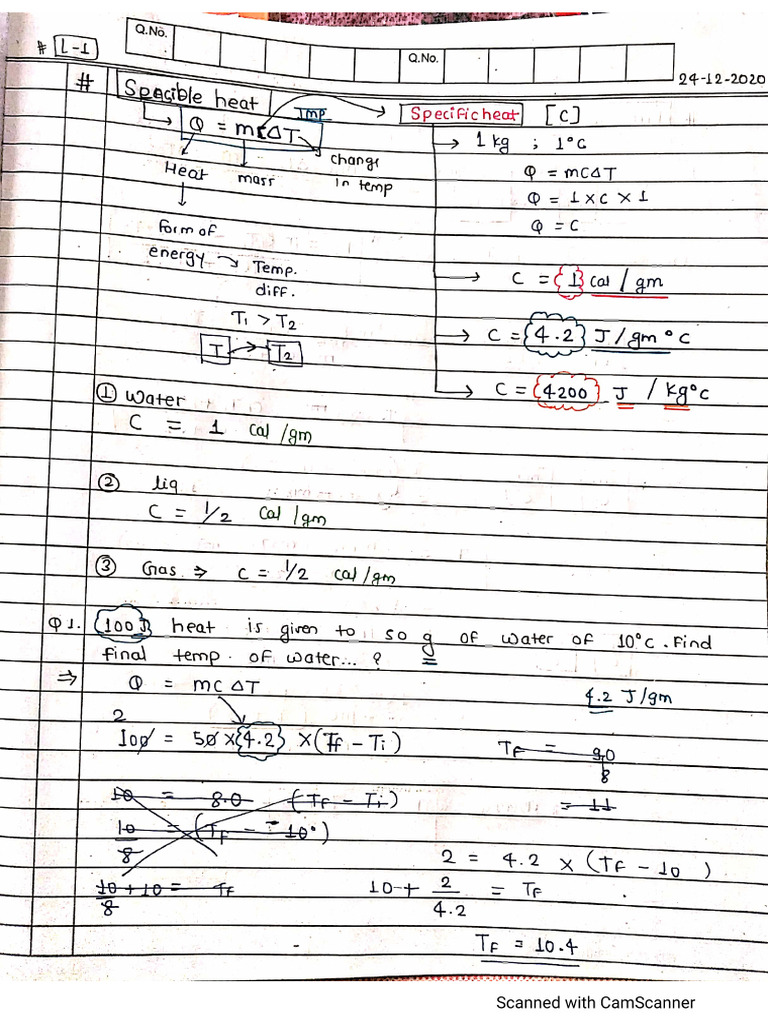 Q.No.
Q.No.
# L-1
24-12-2020
# Specible heat
Imp
Q = mCΔT
Heat
mass
change
in temp
Form of
energy → Temp.
diff.
T1 > T2
T → T2
Specific heat [C]
→ 1 kg ; 1°C
Q = mCΔT
Q = 1 × C × 1
Q = C
→ C = {1} Cal / gm
→ C = {4.2} J / gm °C
→ C = {4200} J / kg°C
① Water
C = 1 Cal /gm
② liq
C = 1/2 Cal /gm
③ Gas ⇒ C = 1/2 cal/gm
Q 1. {100J} heat is given to 50 g of water of 10°C. Find
final temp. of water... ?
⇒ Q = mC ΔT
4.2 J/gm
2
100 = 50 × {4.2} × (Tf - Ti)
TF = 90
8
= 11
10 = 8.0 (TF - Ti)
10 = (TF - 10°)
8
10 + 10 = TF
8
2 = 4.2 × (TF - 10 )
10 + 2 = TF
4.2
TF = 10.4
Scanned with CamScanner